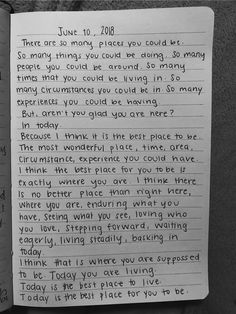 June 10, 2018
There are so many places you could be.
So many things you could be doing. So many
people you could be around. So many
times that you could be living in. So
many circumstances you could be in. So many
experiences you could be having.
But, aren't you glad you are here?
In today.
Because I think it is the best place to be.
The most wonderful place, time, area,
circumstance, experience you could have.
I think the best place for you to be is
exactly where you are. I think there
is no better place than right here,
where you are, enduring what you
have, seeing what you see, loving who
you love, stepping forward, waiting
eagerly, living steadily, basking in
today.
I think that is where you are supposed
to be. Today you are living.
Today is the best place to live.
Today is the best place for you to be.